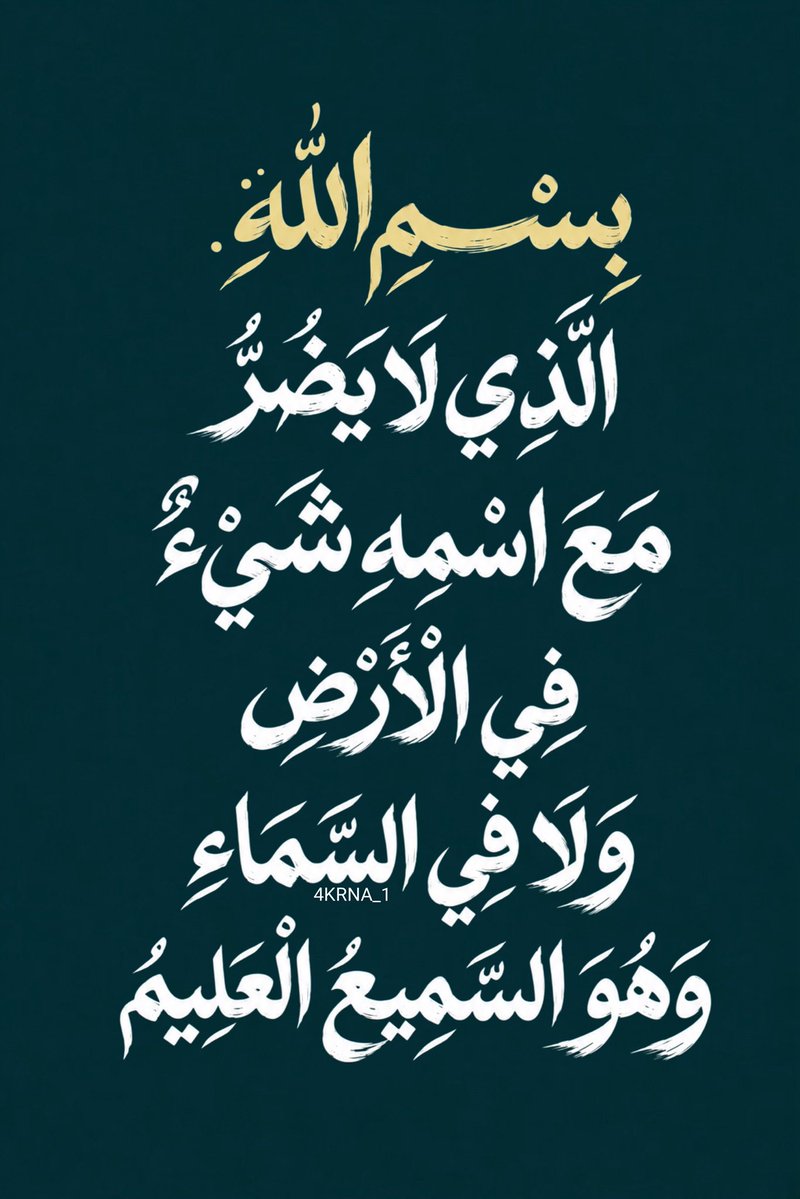 بِسْمِ اللَّهِ.
الَّذِي لَا يَضُرُّ
مَعَ اسْمِهِ شَيْءٌ
فِي الْأَرْضِ
وَلَا فِي السَّمَاءِ
4KRNA_1
وَهُوَ السَّمِيعُ الْعَلِيمُ